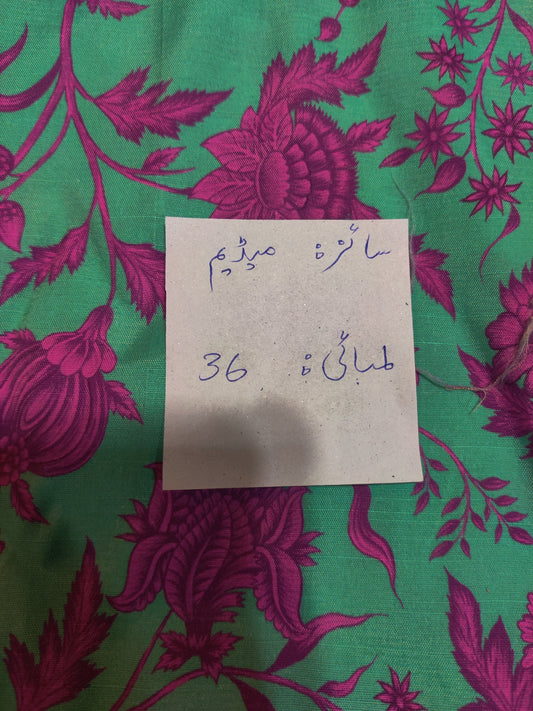 سائز: میڈیم
لمبائی: 36